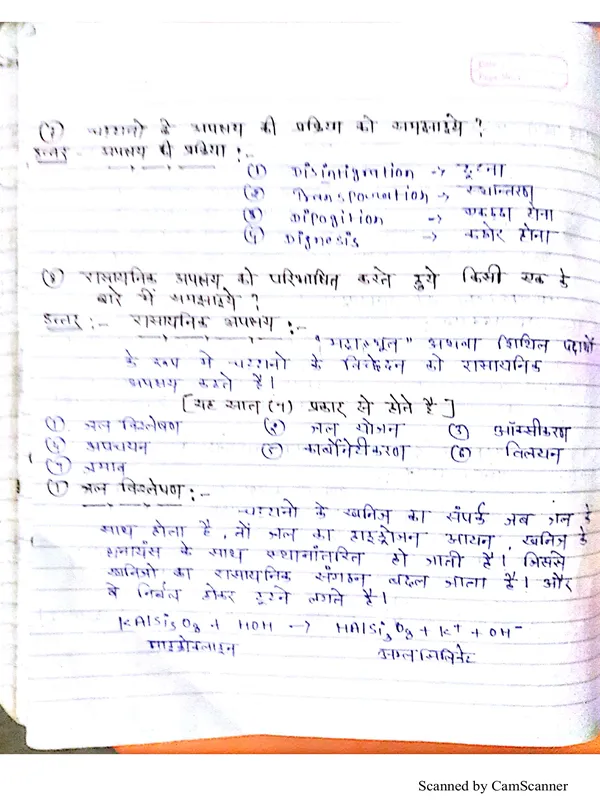 (7) चट्टानो के अपक्षय की प्रक्रिया को समझाइये ?
उत्तर - अपक्षय की प्रक्रिया :-
(1) Disintigration -> टूटना
(2) Transpornation -> स्थानांतरण
(3) Dipogition -> एकट्ठा होना
(4) Dignosis -> कठोर होना
(8) रासायनिक अपक्षय को परिभाषित करते हुये किसी एक के
बारे में समझाइये ?
उत्तर :- रासायनिक अपक्षय :-
अथवा शिथिल पदार्थो
के रूप में चट्टानो के विच्छेदन को रासायनिक
अपक्षय कहते है।
[यह सात (7) प्रकार से होते है]
(1) जल विश्लेषण (2) जल योजन (3) ऑक्सीकरण
(4) अपचयन (5) कार्बोनेटीकरण (6) विलयन
(7)
(1) जल विश्लेषण :-
चट्टानो के खनिज का संपर्क जब जल के
साथ होता है, तों जल का हाइड्रोजन आयन, खनिज के
धनायंस के साथ स्थानांतरित हो जाती है। जिससे
खनिजो का रासायनिक संगठन बदल जाता है। और
वे निर्बल होकर टूटने लगते है।
KAlSi3O8 + HOH -> HAlSi3O8 + K+ + OH-
अम्ल सिलिकेट
Scanned by CamScanner